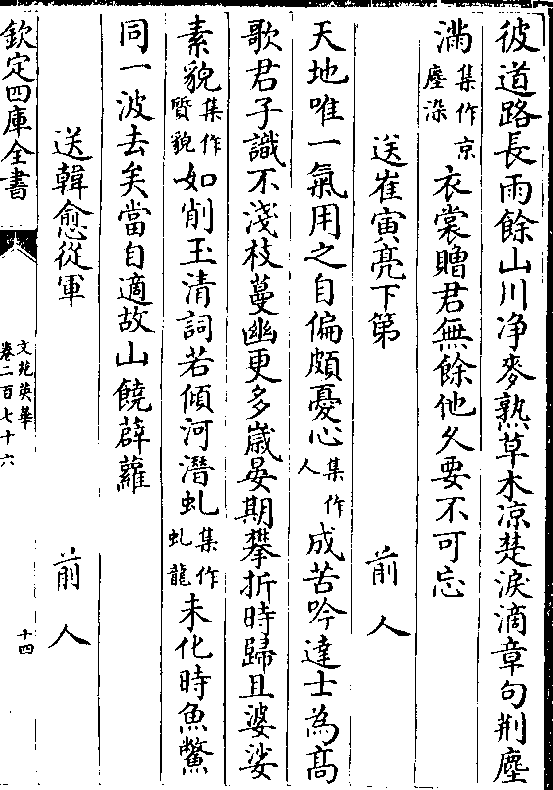 彼道路長雨餘山川净麥熟草木凉楚淚滴章句荆塵
滿集作京塵染衣裳贈君無餘他久要不可忘
送崔寅亮下第　前人
天地唯一氣用之自偏頗憂心集作人成苦吟達士為髙
歌君子識不淺枝蔓幽更多嵗晏期攀折時歸且婆娑
素貌集作質貌如削玉清詞若傾河潛虬集作虬龍未化時魚鱉
同一波去矣當自適故山饒薜蘿
送韓愈從軍　前人
欽定四庫全書
文苑英華
卷二百七十六
十四